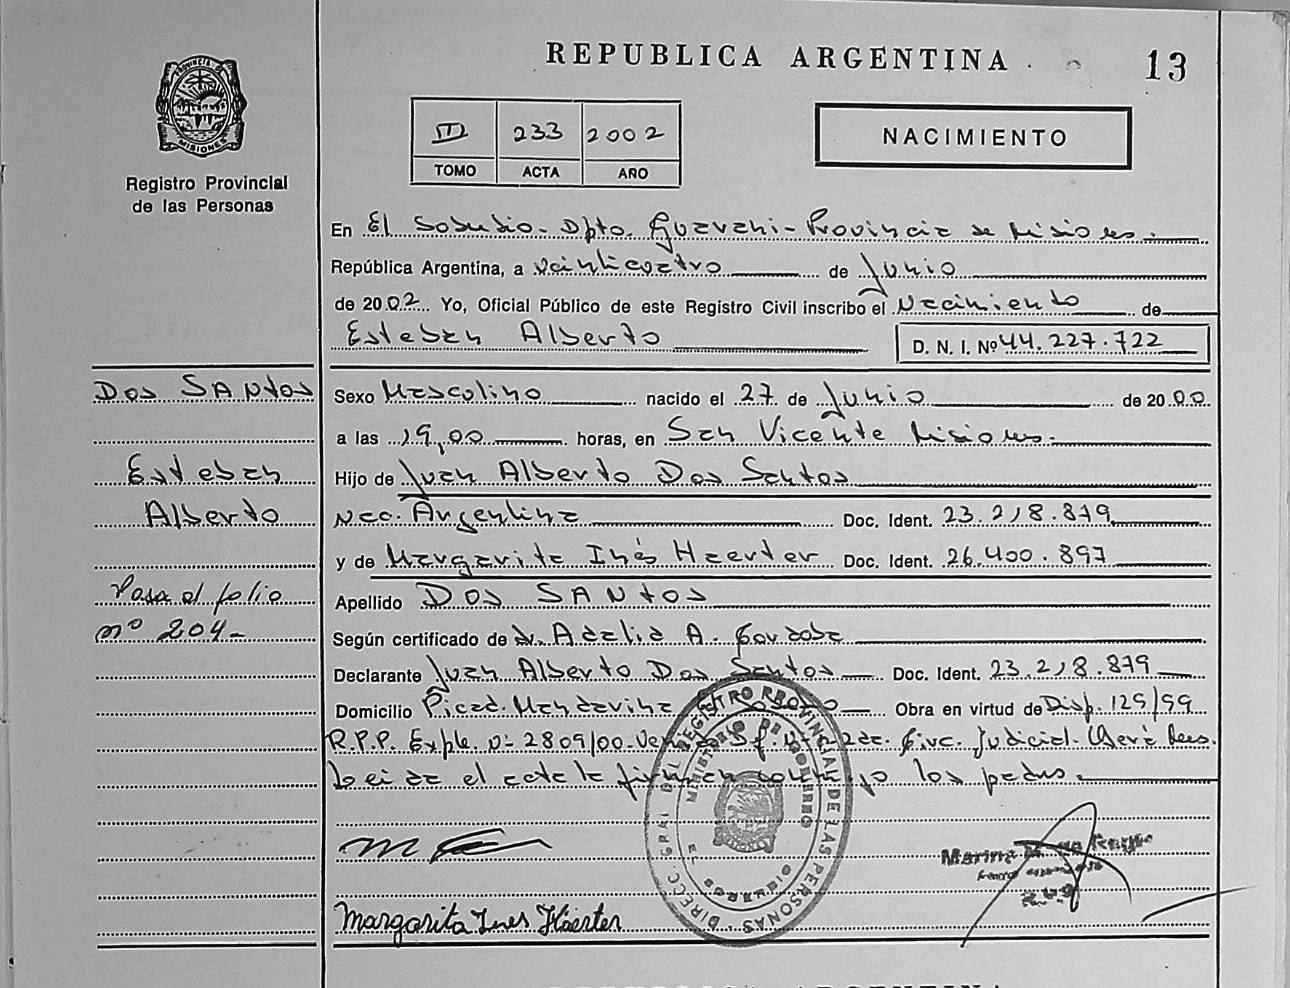 REPUBLICA ARGENTINA
13
PROVINCIA DE MISIONES
Registro Provincial
de las Personas
III 233 2002
TOMO ACTA AÑO
NACIMIENTO
En El Soberbio - Dpto. Guarani - Provincia de Misiones.
República Argentina, a veinticuatro de Junio
de 2002 Yo, Oficial Público de este Registro Civil inscribo el Nacimiento de
Esteban Alberto D. N. I. Nº 44.227.722
Dos SANtos
Esteban
Alberto
Pasa al folio
nº 204-
Sexo Masculino nacido el 27 de Junio de 2000
a las 19,00 horas, en San Vicente Misiones.
Hijo de Juan Alberto Dos Santos
Nac. Argentina Doc. Ident. 23.218.879
y de Margarita Inés Haerter Doc. Ident. 26.400.897
Apellido Dos SANtos
Según certificado de Adelia A. Cordoba
Declarante Juan Alberto Dos Santos Doc. Ident. 23.218.879
Domicilio Picad. Mandarina Obra en virtud de Disp. 125/99
R.P.P. Expte. Nº 2809/00 Circ. Judicial
Leida el acta la firman conmigo los padres.
DIRECC. GRAL. DEL REGISTRO PROVINCIAL DE LAS PERSONAS
MINISTERIO DE GOBIERNO
EL SOBERBIO
Marina M.
Margarita Ines Häerter
REPUBLICA ARGENTINA